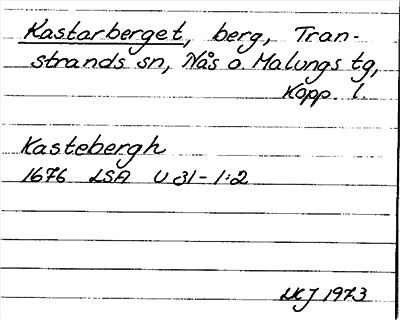 Kastarberget, berg, Tran-
strands sn, Nås o. Malungs tg,
Kopp. l.
Kastebergh
1676 LSA U 31-1:2
1973